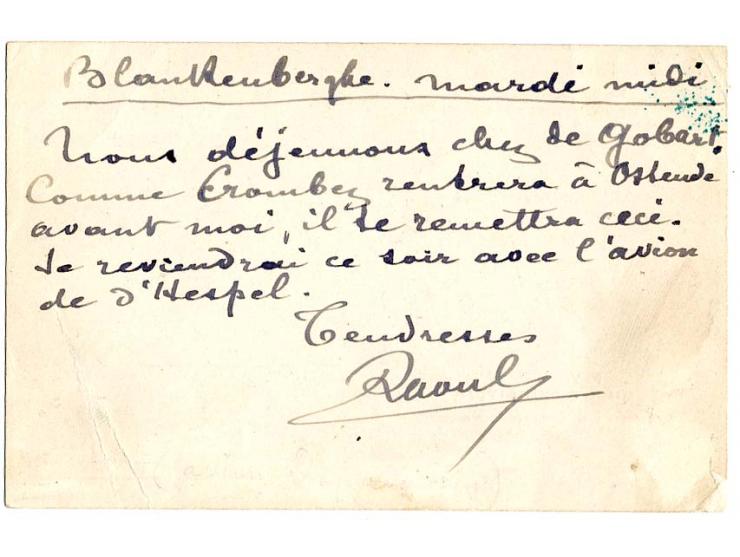 Blankenberghe. mardi midi
Nous déjeunons chez de Gobart.
Comme Crombez rentrera à Ostende
avant moi, il te remettra ceci.
Je reviendrai ce soir avec l'avion
de d'Hespel.
Tendresses
Raoul